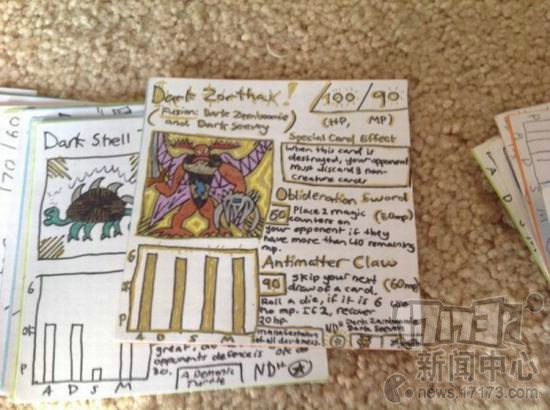 170/60
Dark Shell
6
OF
P
A D S M
great,
opponents defence is
80.
A Demonic
Turtle
ND"
Dark Zorthax!
(Fusion: Dark Zamboomie
and Dark Seevoy)
100/90
(HP, MP)
Special Card Effect
When this card is
destroyed, your opponent
must discard 3 non-
creature cards
Oblideration Sword
50 Place 2 magic (50mp)
counters on
your opponent if they
have more than 40 remaining
mp.
Antimatter Claw
90 skip your next (60mp)
draw of a card.
Roll a die, if it is 6 use
no mp. If 2, recover
20hp.
manifestation
of all darkness.
ND"
A D S M
新闻中心
news.17173.com